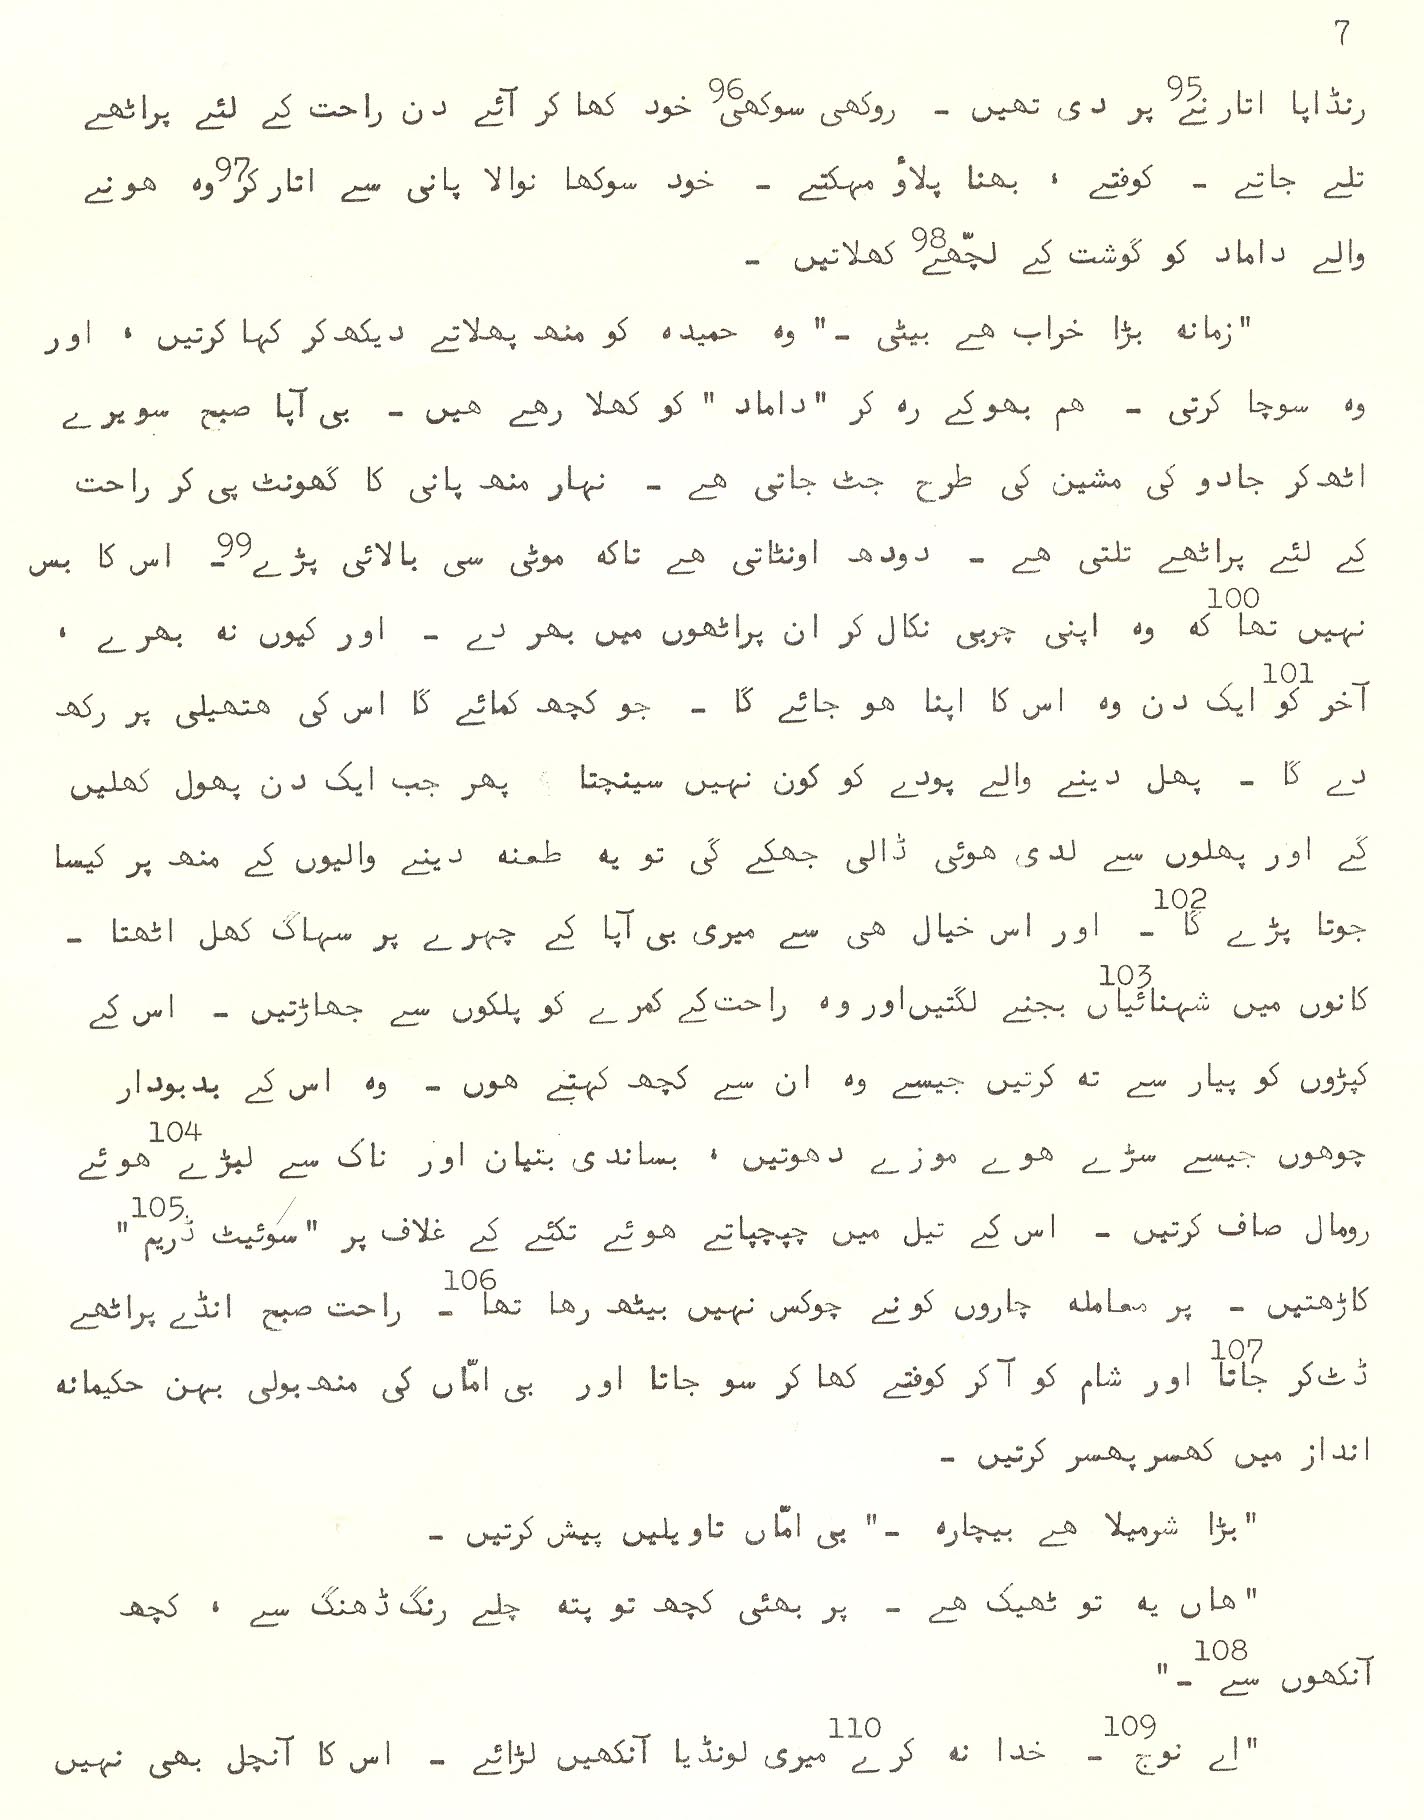 7
رنڈاپا اتارنے95 پر دی تھیں ۔ روکھی سوکھی96 خود کھا کر آئے دن راحت کے لئے پراٹھے
تلے جاتے ۔ کوفتے ، بھنا پلاؤ مہکتے ۔ خود سوکھا نوالا پانی سے اتار کر97 وہ ہونے
والے داماد کو گوشت کے لچّھے98 کھلاتیں ۔
"زمانہ بڑا خراب ہے بیٹی ۔" وہ حمیدہ کو منھ پھلاتے دیکھ کر کہا کرتیں ، اور
وہ سوچا کرتی ۔ ہم بھوکے رہ کر "داماد" کو کھلا رہے ہیں ۔ بی آپا صبح سویرے
اٹھ کر جادو کی مشین کی طرح جٹ جاتی ہے ۔ نہار منھ پانی کا گھونٹ پی کر راحت
کے لئے پراٹھے تلتی ہے ۔ دودھ اونٹاتی ہے تاکہ موٹی سی بالائی پڑے99 ۔ اس کا بس
نہیں تھا100 کہ وہ اپنی چربی نکال کر ان پراٹھوں میں بھر دے ۔ اور کیوں نہ بھرے ،
آخر کو101 ایک دن وہ اس کا اپنا ہو جائے گا ۔ جو کچھ کمائے گا اس کی ہتھیلی پر رکھ
دے گا ۔ پھل دینے والے پودے کو کون نہیں سینچتا پھر جب ایک دن پھول کھلیں
گے اور پھلوں سے لدی ہوئی ڈالی جھکے گی تو یہ طعنہ دینے والیوں کے منھ پر کیسا
جوتا پڑے گا102 ۔ اور اس خیال ہی سے میری بی آپا کے چہرے پر سہاگ کھل اٹھتا ۔
کانوں میں شہنائیاں103 بجنے لگتیں اور وہ راحت کے کمرے کو پلکوں سے جھاڑتیں ۔ اس کے
کپڑوں کو پیار سے تہ کرتیں جیسے وہ ان سے کچھ کہتے ہوں ۔ وہ اس کے بدبودار
چوہوں جیسے سڑے ہوے موزے دھوتیں ، بساندی بنیان اور ناک سے لپڑے104 ہوئے
رومال صاف کرتیں ۔ اس کے تیل میں چپچپاتے ہوئے تکئے کے غلاف پر "سوئیٹ ڈریم105"
کاڑھتیں ۔ پر معاملہ چاروں کونے چوکس نہیں بیٹھ رہا تھا106 ۔ راحت صبح انڈے پراٹھے
ڈٹ کر جاتا107 اور شام کو آ کر کوفتے کھا کر سو جاتا اور بی امّاں کی منھ بولی بہن حکیمانہ
انداز میں کھسر پھسر کرتیں ۔
"بڑا شرمیلا ہے بیچارہ ۔" بی امّاں تاویلیں پیش کرتیں ۔
"ہاں یہ تو ٹھیک ہے ۔ پر بھئی کچھ تو پتہ چلے رنگ ڈھنگ سے ، کچھ
آنکھوں سے108 ۔"
"اے نوج109 ۔ خدا نہ کرے110 میری لونڈیا آنکھیں لڑائے ۔ اس کا آنچل بھی نہیں